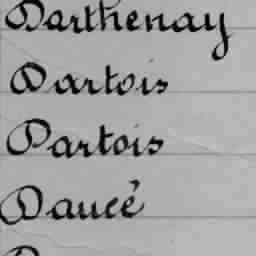 Darthenay
Dartois
Dartois
Daucé